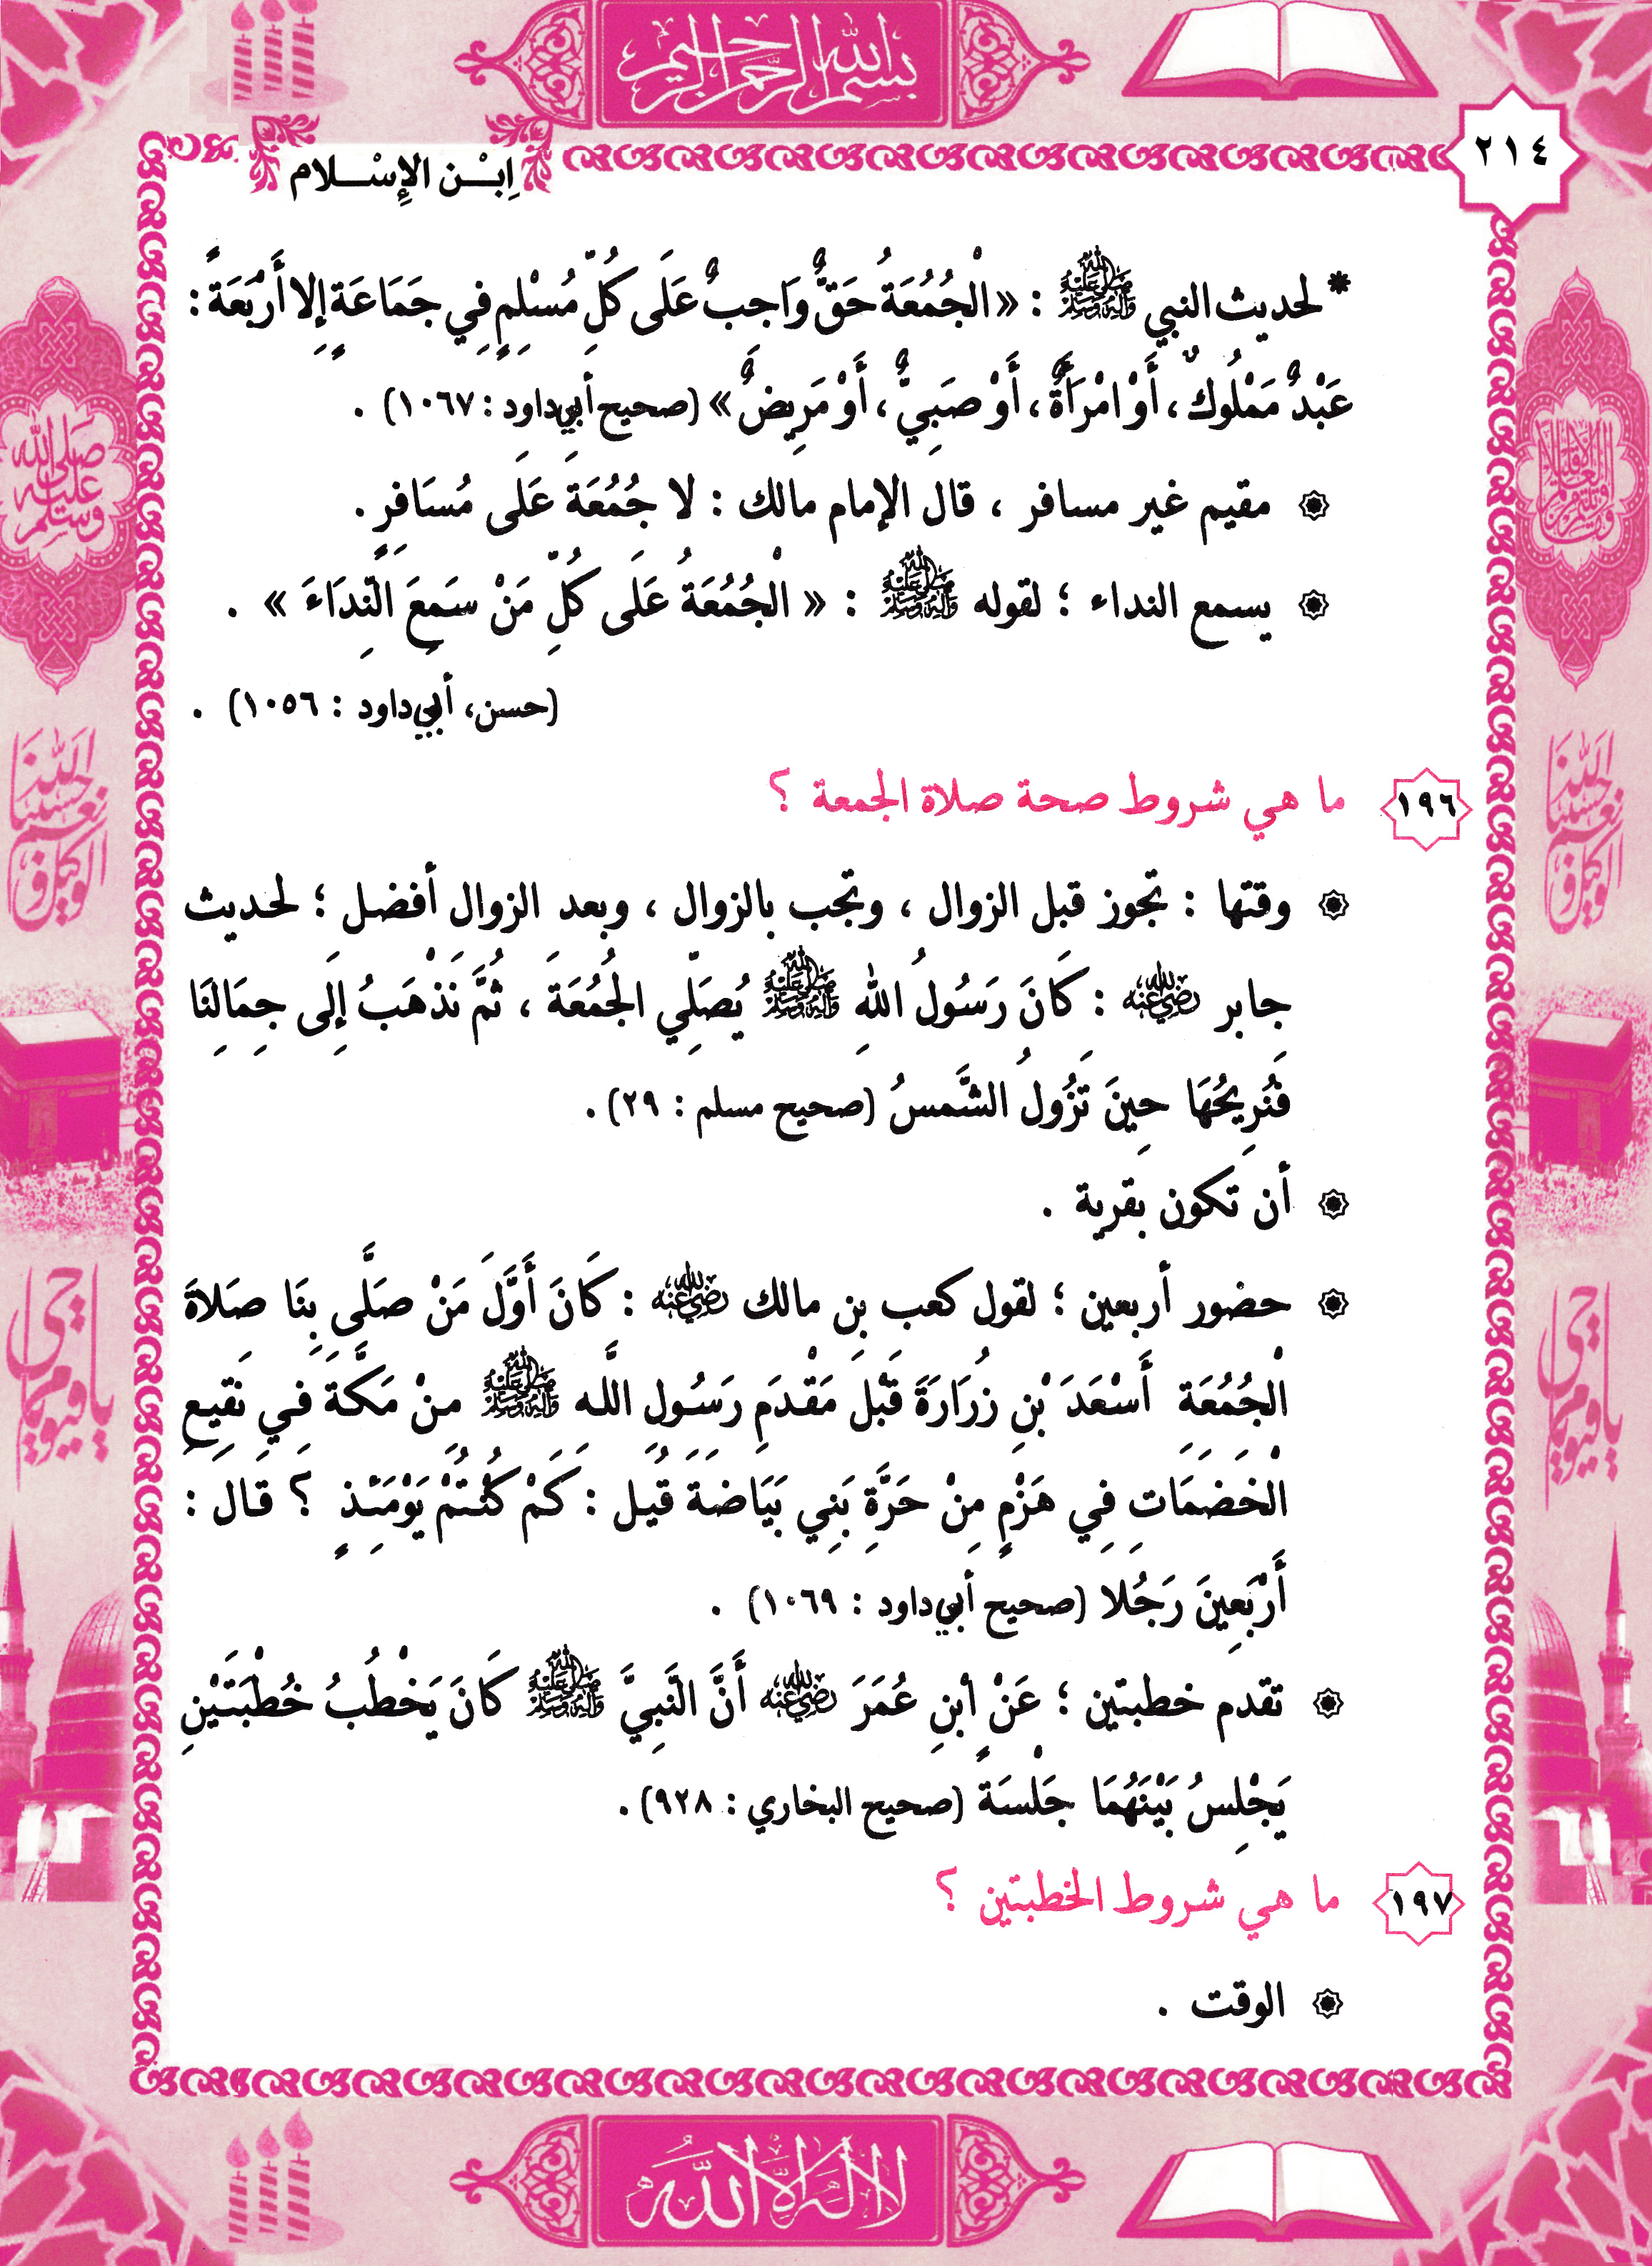 بسم الله الرحمن الرحيم
٢١٤
اِبْن الإِسْلام
* لحديث النبي ﷺ : « الْجُمُعَةُ حَقٌّ وَاجِبٌ عَلَى كُلِّ مُسْلِمٍ فِي جَمَاعَةٍ إِلا أَرْبَعَةً :
عَبْدٌ مَمْلُوكٌ ، أَوْ امْرَأَةٌ ، أَوْ صَبِيٌّ ، أَوْ مَرِيضٌ » (صحيح أبي داود : ١٠٦٧) .
مقيم غير مسافر ، قال الإمام مالك : لا جُمُعَةَ عَلَى مُسَافِرٍ .
يسمع النداء ؛ لقوله ﷺ : « الْجُمُعَةُ عَلَى كُلِّ مَنْ سَمِعَ النِّدَاءَ » .
(حسن، أبي داود : ١٠٥٦) .
١٩٦ ما هي شروط صحة صلاة الجمعة ؟
وقتها : تجوز قبل الزوال ، وتجب بالزوال ، وبعد الزوال أفضل ؛ لحديث
جابر رضي الله عنه : كَانَ رَسُولُ اللهِ ﷺ يُصَلِّي الجُمُعَةَ ، ثُمَّ نَذْهَبُ إِلَى جِمَالِنَا
فَنُرِيحُهَا حِينَ تَزُولُ الشَّمسُ (صحيح مسلم : ٢٩) .
أن تكون بقرية .
حضور أربعين ؛ لقول كعب بن مالك رضي الله عنه : كَانَ أَوَّلَ مَنْ صَلَّى بِنَا صَلاةَ
الْجُمُعَةِ أَسْعَدَ بْنِ زُرَارَةَ قَبْلَ مَقْدَمِ رَسُولِ اللَّه ﷺ مِنْ مَكَّةَ فِي نَقِيعِ
الْخَضَمَاتِ فِي هَزْمٍ مِنْ حَرَّةِ بَنِي بَيَاضَةَ قِيلَ : كَمْ كُنْتُمْ يَوْمَئِذٍ ؟ قَال :
أَرْبَعِينَ رَجُلا (صحيح أبي داود : ١٠٦٩) .
تقدم خطبتين ؛ عَنْ ابنِ عُمَرَ رضي الله عنه أَنَّ النَّبِيَّ ﷺ كَانَ يَخْطُبُ خُطْبَتَيْنِ
يَجْلِسُ بَيْنَهُمَا جَلْسَةً (صحيح البخاري : ٩٢٨) .
١٩٧ ما هي شروط الخطبتين ؟
الوقت .
لا إله إلا الله
صلى الله عليه وسلم
حسبنا الله ونعم الوكيل
يا حي يا قيوم
حسبنا الله ونعم الوكيل
يا حي يا قيوم